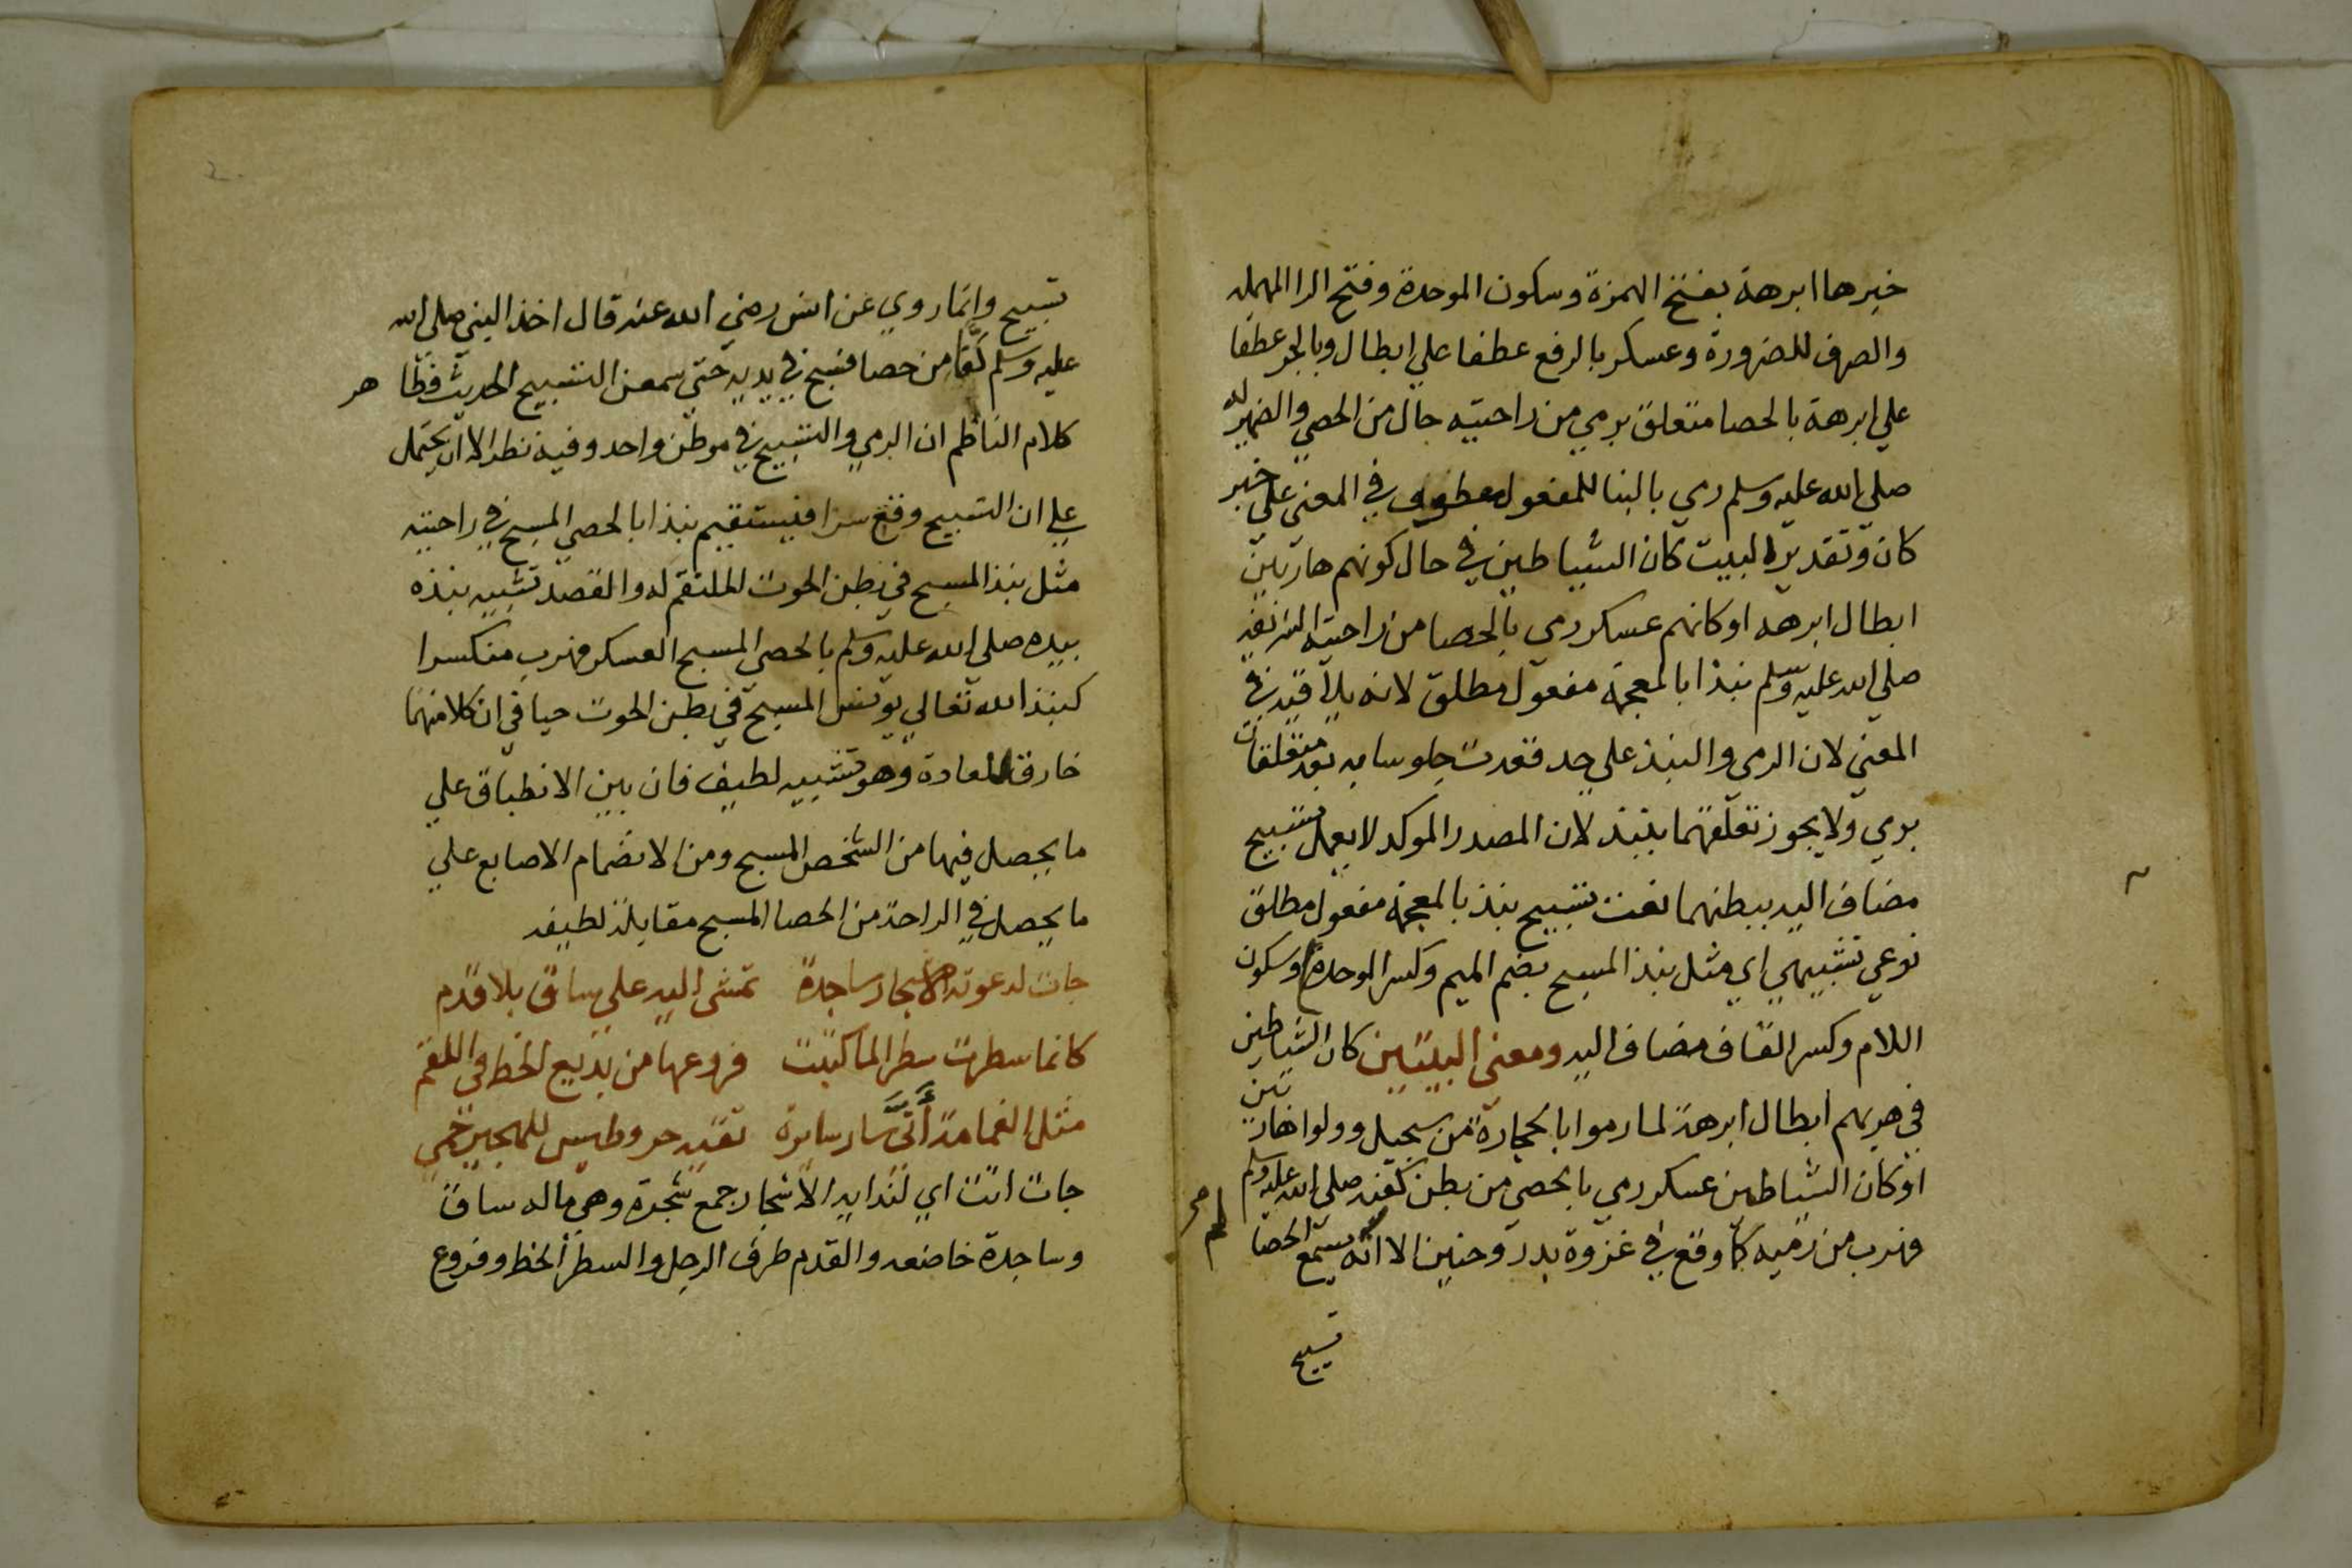 خبرها ابرهة بفتح الهمزة وسكون الموحدة وفتح الرا المهمله
والصرف للضرورة وعسكر بالرفع عطفا علي ابطال وبالجر عطفا
علي ابرهة بالحصا متعلق برمي من راحتيه حال من الحصي والضمير له
صلي الله عليه وسلم رمي بالبنا للمفعول معطوف في المعني علي خبر
كان وتقدير البيت كان الشياطين في حال كونهم هاربين
ابطال ابرهه او كانهم عسكر رمي بالحصا من راحتيه الشريفه
صلي الله عليه وسلم نبذا بالمعجمة مفعول مطلق لانه بلاقيه في
المعني لان الرمي والنبذ علي حد قعدت جلوسا به بعد متعلقات
برمي ولا يجوز تعلقهما بنبذ لان المصدر الموكد لا يعمل تسبيح
مضاف اليه ببطنهما نعت تسبيح نبذ بالمعجمة مفعول مطلق
نوعي تشبيهي اي مثل نبذ المسبح بضم الميم وكسر الموحدة وسكون
اللام وكسر القاف مضاف اليه ومعني البيتين كان الشياطين
في هربهم ابطال ابرهة لما رموا بالحجارة من سجيل وولوا هاربين
او كان الشياطين عسكر رمي بالحصي من بطن كفه صلي الله عليه وسلم
فهرب من رميه كما وقع في غزوة بدر وحنين الا انه لم يسمع الحصا
تسبيح
تسبيح وانما روي عن انس رضي الله عنه قال اخذ النبي صلي الله
عليه وسلم كفا من حصا فسبح في يديه حتي سمعن التسبيح الحديث فظاهر
كلام الناظم ان الرمي والتسبيح في موطن واحد وفيه نظر الا ان يحتمل
علي ان التسبيح وقع سرا فيستقيم نبذا بالحصي المسبح في راحتيه
مثل نبذ المسبح في بطن الحوت الملتقم له والقصد تشبيه نبذه
بيده صلي الله عليه وسلم بالحصي المسبح العسكر فهرب منكسرا
كنبذ الله تعالي يونس المسبح في بطن الحوت حيا في ان كلا منهما
خارق للعادة وهو تشبيه لطيف فان بين الانطباق علي
ما يحصل فيها من الشخص المسبح ومن الانضمام الاصابع علي
ما يحصل في الراحة من الحصا المسبح مقابلة لطيفه
جات لدعوته الاشجار ساجدة تمشي اليه علي ساق بلا قدم
كانما سطرت سطرا لما كتبت فروعها من بديع الخط في اللقم
مثل الغمامة أنَّى سار سايرة تقيه حر وطيس للهجير حمي
جات اتت اي لندايه الاشجار جمع شجرة وهي ماله ساق
وساجدة خاضعه والقدم طرف الرجل والسطر الخط وفروع